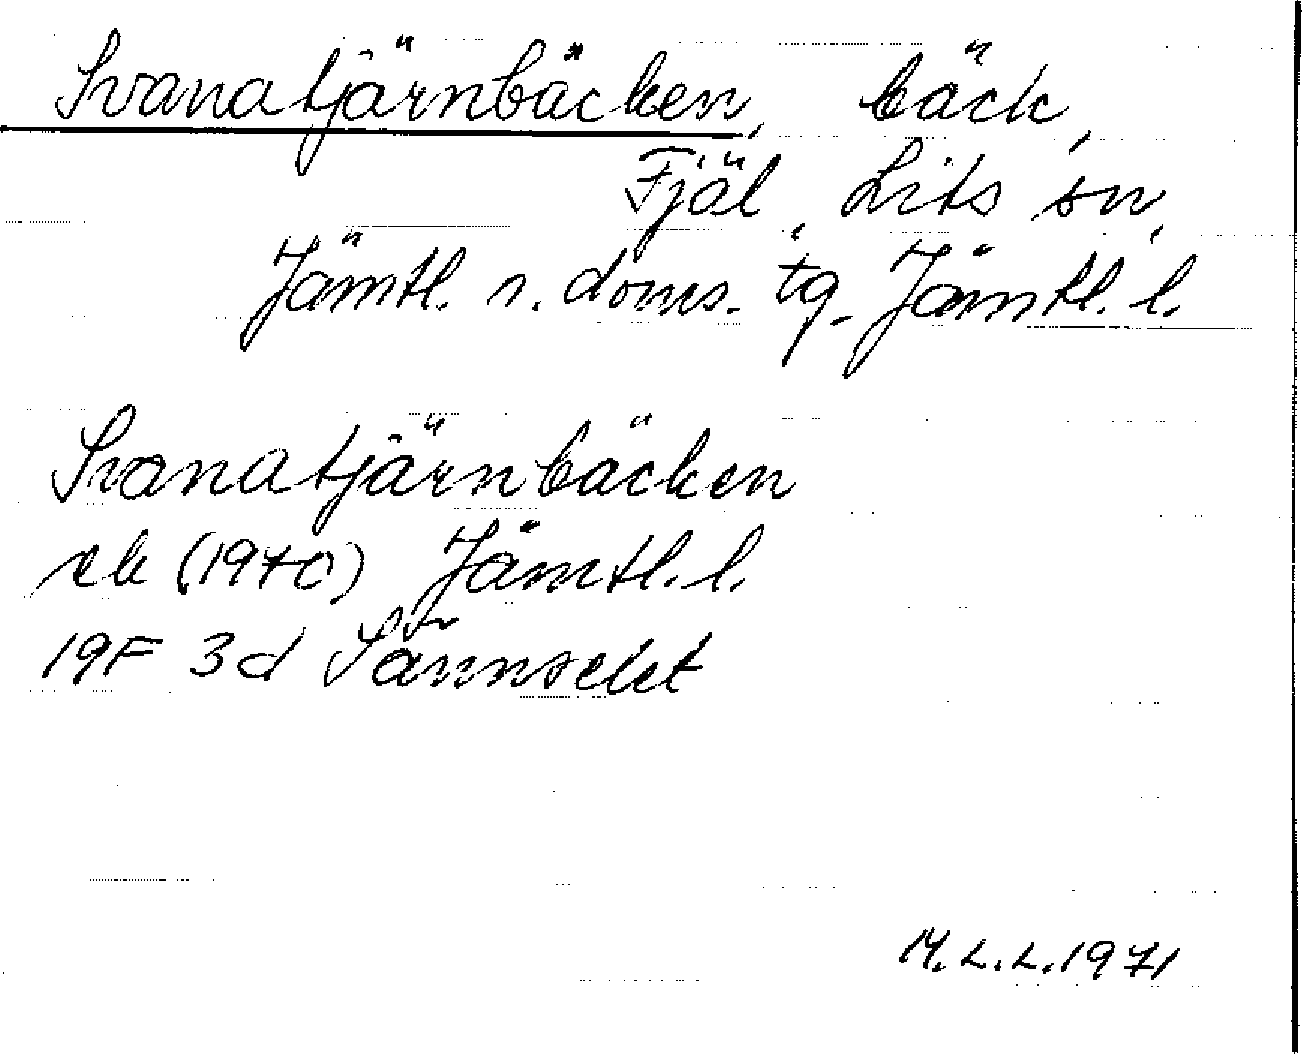 Svanatjärnbäcken, bäck,
Fjäl, Lits sn,
Jämtl. n. doms. tg. Jämtl. l.
Svanatjärnbäcken
ek (1970) Jämtl. l.
19F 3d Sännselet
M.L.L. 1971